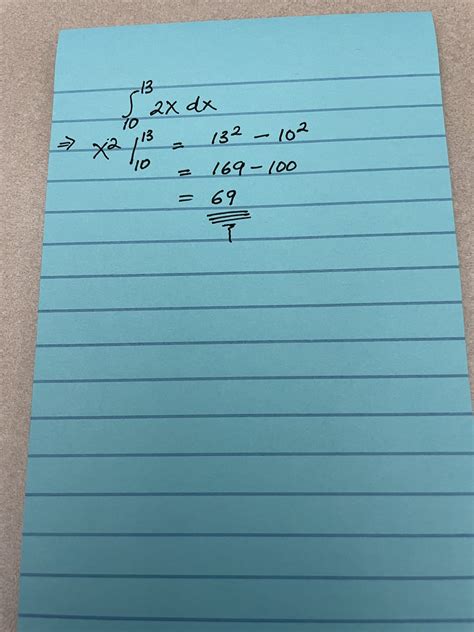 ∫₁₀¹³ 2x dx
⇒ x² |₁₀¹³ = 13² − 10²
= 169 − 100
= 69